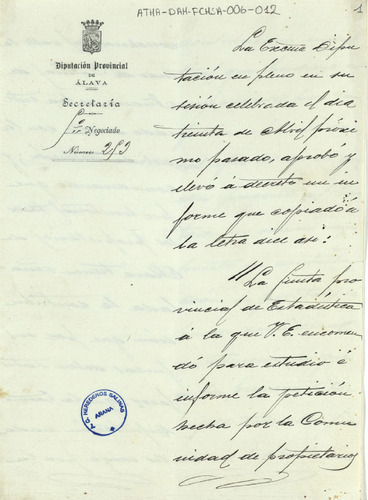 ATHA-DAH-FCHSA-006-012
1
Diputación Provincial
DE
ÁLAVA
Secretaría
Negociado
Número 253
La Excma Dipu
tación en pleno en su
sesión celebrada el dia
treinta de Abril próxi
mo pasado, aprobó y
elevó á decreto un in
forme que copiado á
la letra dice así:
"La Junta pro
vincial de Estadística
á la que V. E. encomen
dó para estudio é
informe la petición
hecha por la Comu
nidad de propietarios
J.G. HEREDEROS SALINAS
ARANA